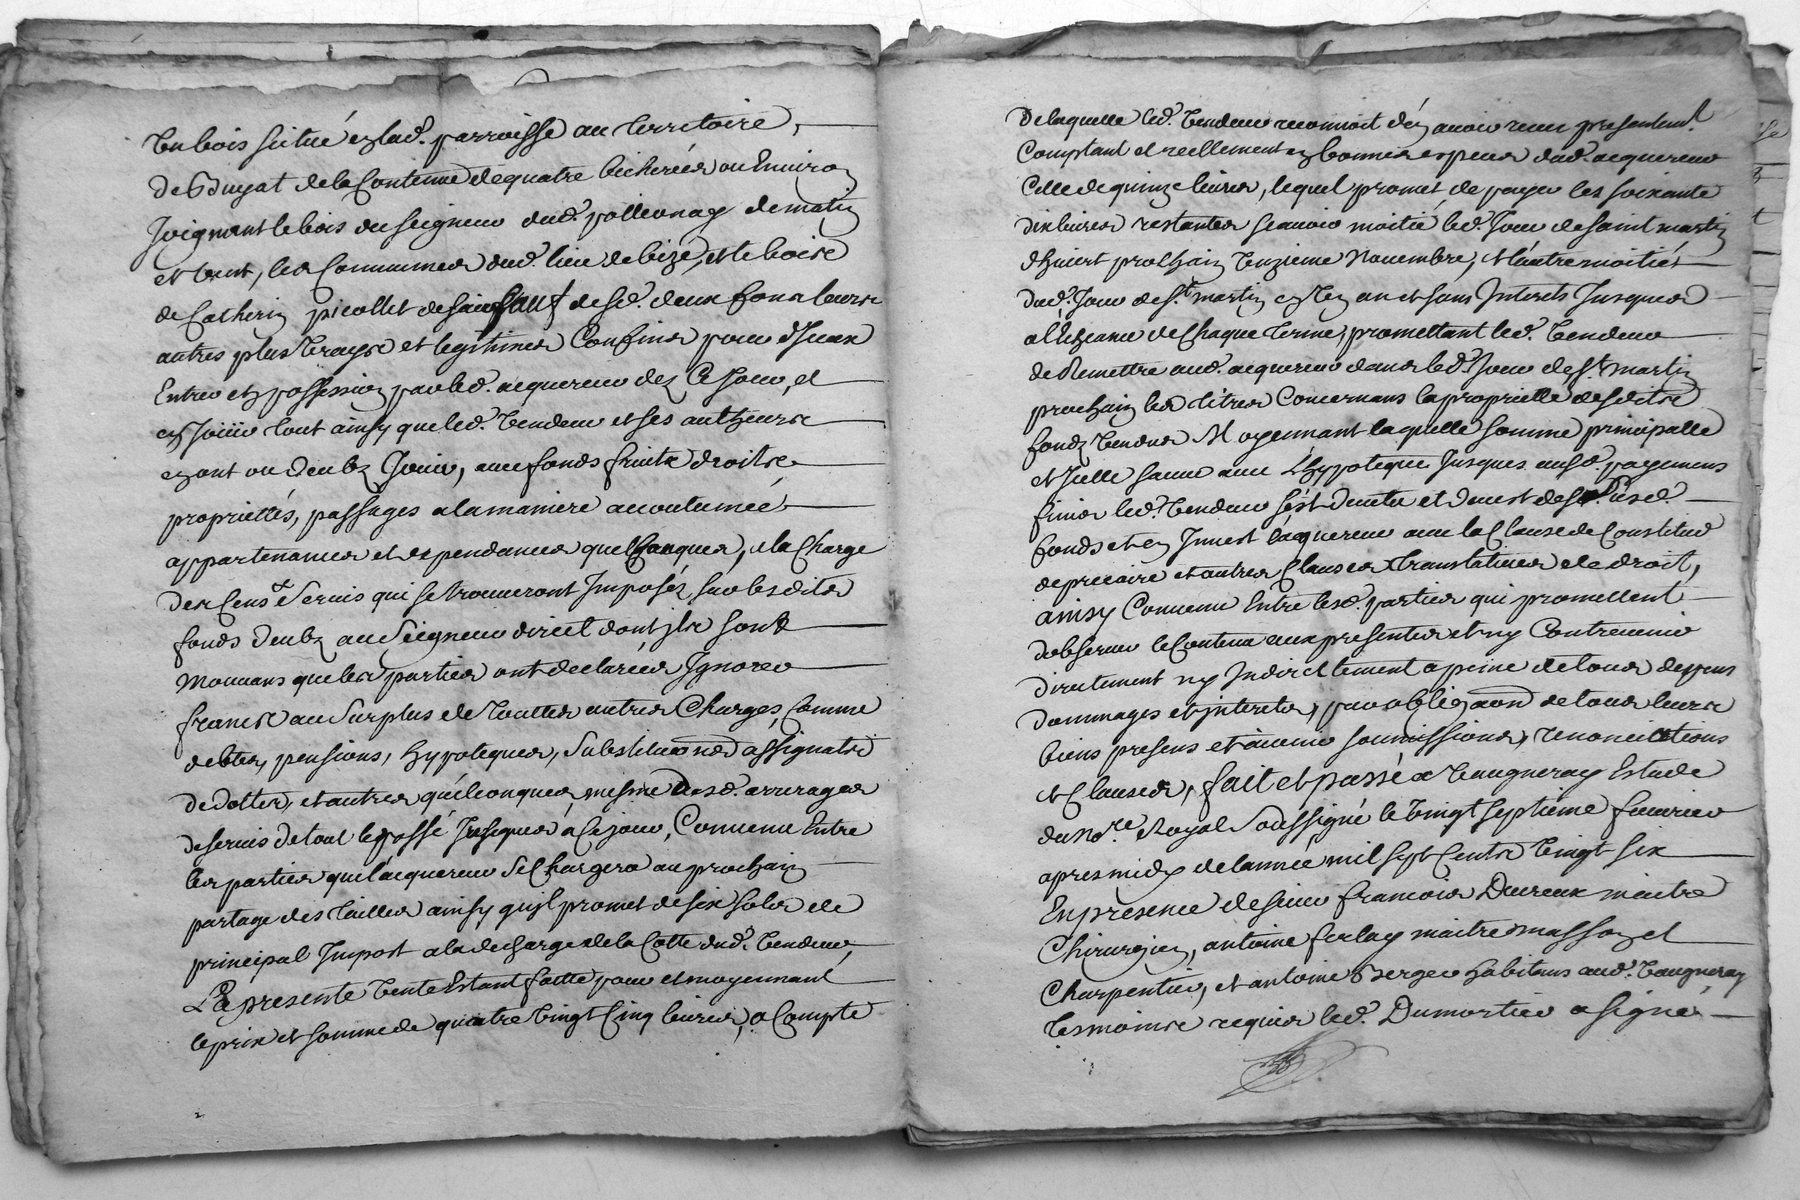 Un bois scitué en lad. parroisse au territoire
De Buyat de la Contenue de quatre bicherées ou Environ
Joignant le bois du seigneur dud. pollionnay de matin
et vent, les Communes dud. lieu de bize, et le bois
de Catherin picollet de soir sauf desd. deux fonds leurs
autres plus vrays et legitimes Confins pour d'Iceux
Entrer en possession par led. acquereur dez Ce Jour, et
en Joüir tout ainsy que led. Vendeur et ses autheurs
en ont ou deub Jouir, avec fonds fruits droits
proprietés, passages a la maniere accoutumée
appartenances et dependances quelconques, a la Charge
Des Cens & servis qui se trouveront Imposés sur lesdits
fonds deubz au Seigneur direct dont ils sont
Mouvans que les parties ont declarées Ignorer
francs au Surplus de touttes autres Charges, Comme
debtes, pensions, hypoteques, substitutions assignats
de dotte, et autres quélconques mesme desd. arrerages
de servis de tout le passé Jusques à Ce jour, Convenu Entre
les parties que l'acquereur se Chargera au prochain
partage des tailles ainsy qu'il promet de six sols de
principal Impost a la decharge de la Cotte dud. Vendeur,
La presente vente Estant faitte pour et moyennant
le prix et somme de quatre vingt Cinq livres, a Compte
De laquelle led. Vendeur reconnoit déz avoir receu presentemt.
Comptant et reellement en bonnes especes dud. acquereur
Celle de quinze livres, lequel promet de payer les soixante
dix livres restantes scavoir moitié led. Jour de saint martin
d'hivert prochain unzieme Novembre, et l'autre moitié
dud. Jour de St. martin en un an et sans Interets Jusques
a l'Echeance de Chaque terme, promettant led. Vendeur
de Remettre aud. acquereur dans led. Jour de St. martin
prochain les titres Concernans la proprietté desdits
fondz Vendus Moyennant laquelle somme principalle
et Icelle sauve avec L'hypoteque Jusques ausd. payemens
finis led. Vendeur s'est devetu et devest desd.
fonds et en Invest l'acquereur avec la Clause de Constitut
de precaire et autres Clauses translatives de droit,
ainsy Convenu Entre lesd. parties qui promettent
d'observer le Contenu aux presentes et n'y Contrevenir
directement ny Indirectement a peine de tous depens
dommages et jnterets, par obligaon de tous leurs
biens presens et avenir soumissions, renonciations
et Clauses, fait et passé a Vaugneray Estude
du Nore. Royal Soussigné le vingt septième fevrier
apres midy de lannée mil sept Cents vingt six
En presence de sieur francois Dureux maitre
Chirurgien, antoine ferlay maitre masson et
Charpentier, et antoine Berger habitans aud. Vaugneray
tesmoins requis led. Dumortier a signé